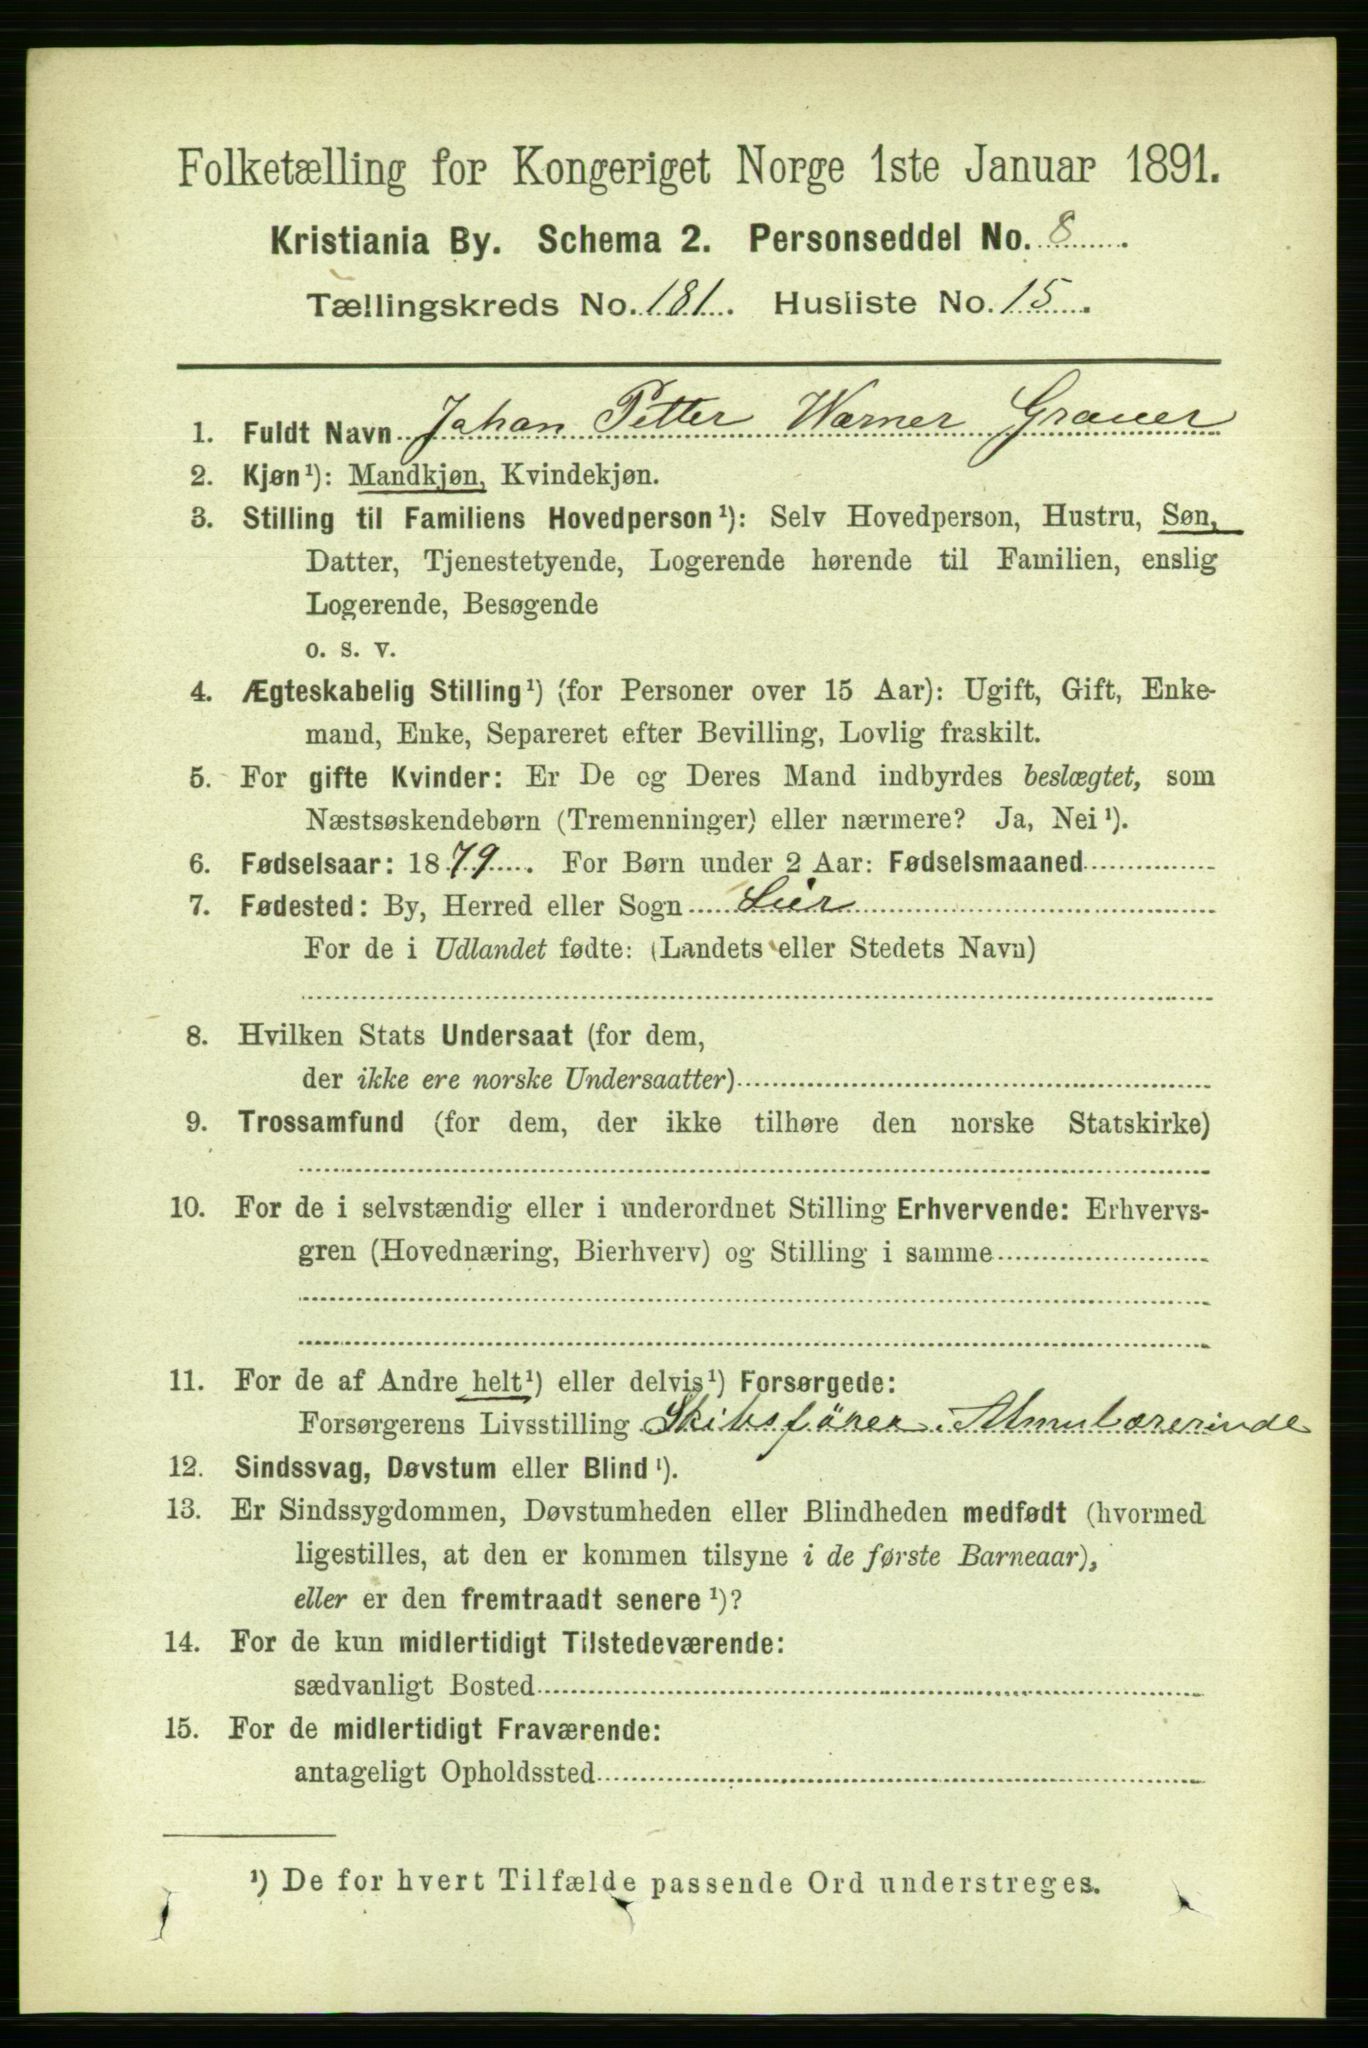 Folketælling for Kongeriget Norge 1ste Januar 1891.
Kristiania By. Schema 2. Personseddel No. 8.
Tællingskreds No. 181. Husliste No. 15.
1. Fuldt Navn Johan Petter Warner Graver
2. Kjøn¹): Mandkjøn, Kvindekjøn.
3. Stilling til Familiens Hovedperson¹): Selv Hovedperson, Hustru, Søn,
Datter, Tjenestetyende, Logerende hørende til Familien, enslig
Logerende, Besøgende
o. s. v.
4. Ægteskabelig Stilling¹) (for Personer over 15 Aar): Ugift, Gift, Enke-
mand, Enke, Separeret efter Bevilling, Lovlig fraskilt.
5. For gifte Kvinder: Er De og Deres Mand indbyrdes beslægtet, som
Næstsøskendebørn (Tremenninger) eller nærmere? Ja, Nei¹).
6. Fødselsaar: 1879. For Børn under 2 Aar: Fødselsmaaned
7. Fødested: By, Herred eller Sogn Lier
For de i Udlandet fødte: (Landets eller Stedets Navn)
8. Hvilken Stats Undersaat (for dem,
der ikke ere norske Undersaatter)
9. Trossamfund (for dem, der ikke tilhøre den norske Statskirke)
10. For de i selvstændig eller i underordnet Stilling Erhvervende: Erhvervs-
gren (Hovednæring, Bierhverv) og Stilling i samme
11. For de af Andre helt¹) eller delvis¹) Forsørgede:
Forsørgerens Livsstilling Skibsförer.
12. Sindssvag, Døvstum eller Blind¹).
13. Er Sindssygdommen, Døvstumheden eller Blindheden medfødt (hvormed
ligestilles, at den er kommen tilsyne i de første Barneaar),
eller er den fremtraadt senere¹)?
14. For de kun midlertidigt Tilstedeværende:
sædvanligt Bosted
15. For de midlertidigt Fraværende:
antageligt Opholdssted
¹) De for hvert Tilfælde passende Ord understreges.